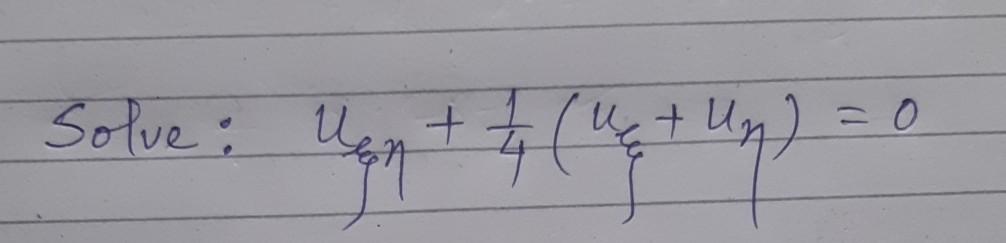 Solve: u_ξη + 1/4 (u_ξ + u_η) = 0